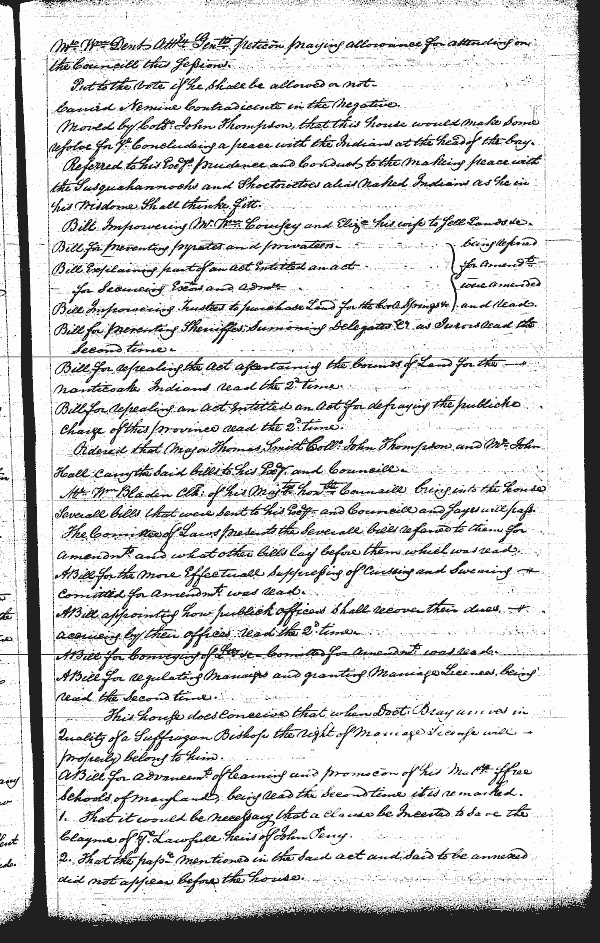 Mr. Wm. Dent Atty Genll petićon praying allowance for attending on
the Councill this Session.
Put to the vote if he shall be allowed or not.
Carried Nemine Contradicente in the Negative.
Moved by Collo. John Thompson, that this house would make some
resolve for ye Concluding a peace with the Indians at the head of the bay.
Referred to his Excys. prudence and Conduct to the making peace with
the Susquahannochs and alias Naked Indians as he in
his wisdome Shall thinke fitt.
Bill Impowering Mr. Wm. Coursey and Eliza his wife to Sell Lands &c.
Bill for preventing pyrates and privateers.
Bill Explaining part of an Act Entitled an act
for Secureing Execrs and Admrs
Bill Impowering Trustees to purchase Land for the Cool Springs &c
being referred
for Amendts
were amended
and read.
Bill for preventing Sheriffes Sumoning Delegates &c as Jurors read the
Second time.
Bill for repealing the Act ascertaining the bounds of Land for the
nanticoak Indians read the 2d time.
Bill for repealing an Act Entitled an Act for defraying the publick
Charge of this province read the 2d time.
Ordered that Major Thomas Smith Collo. John Thompson and Mr. John
Hall carry the said bills to his Excy. and Councill.
Mr. Wm. Bladen Clk: of his Majtys honble Councill bring into the house
Severall bills that were sent to his Excy and Councill and Sayes will pass.
The Comittee of Laws presents the Severall bills refered to them for
amendmt. and what other bills lay before them which was read.
A Bill for the More Effectuall Suppressing of Cursing and Swearing
comitted for amendmt. was read.
A Bill appointing how publick officers Shall recover their dues
accrueing by their offices read the 2d time.
A Bill for Conveying of &c Comitted for Amendmt. was read.
A Bill for regulating Mariages and granting Mariage Licences, being
read the Second time.
This house does conceive that when Doct. Bray arives in
Quality of a Suffragan Bishop the right of Mariage License will
properly belong to him.
A Bill for advancemt. of learning and promocon of his Matys ffree
Schools of Maryland, being read the Second time it is remarked.
1. That it would be necessary that a clause be Incerted to Save the
Clayme of ye. Lawfull heirs of John Pery.
2. That the mentioned in the Said act and said to be annexed
did not appear before the house.